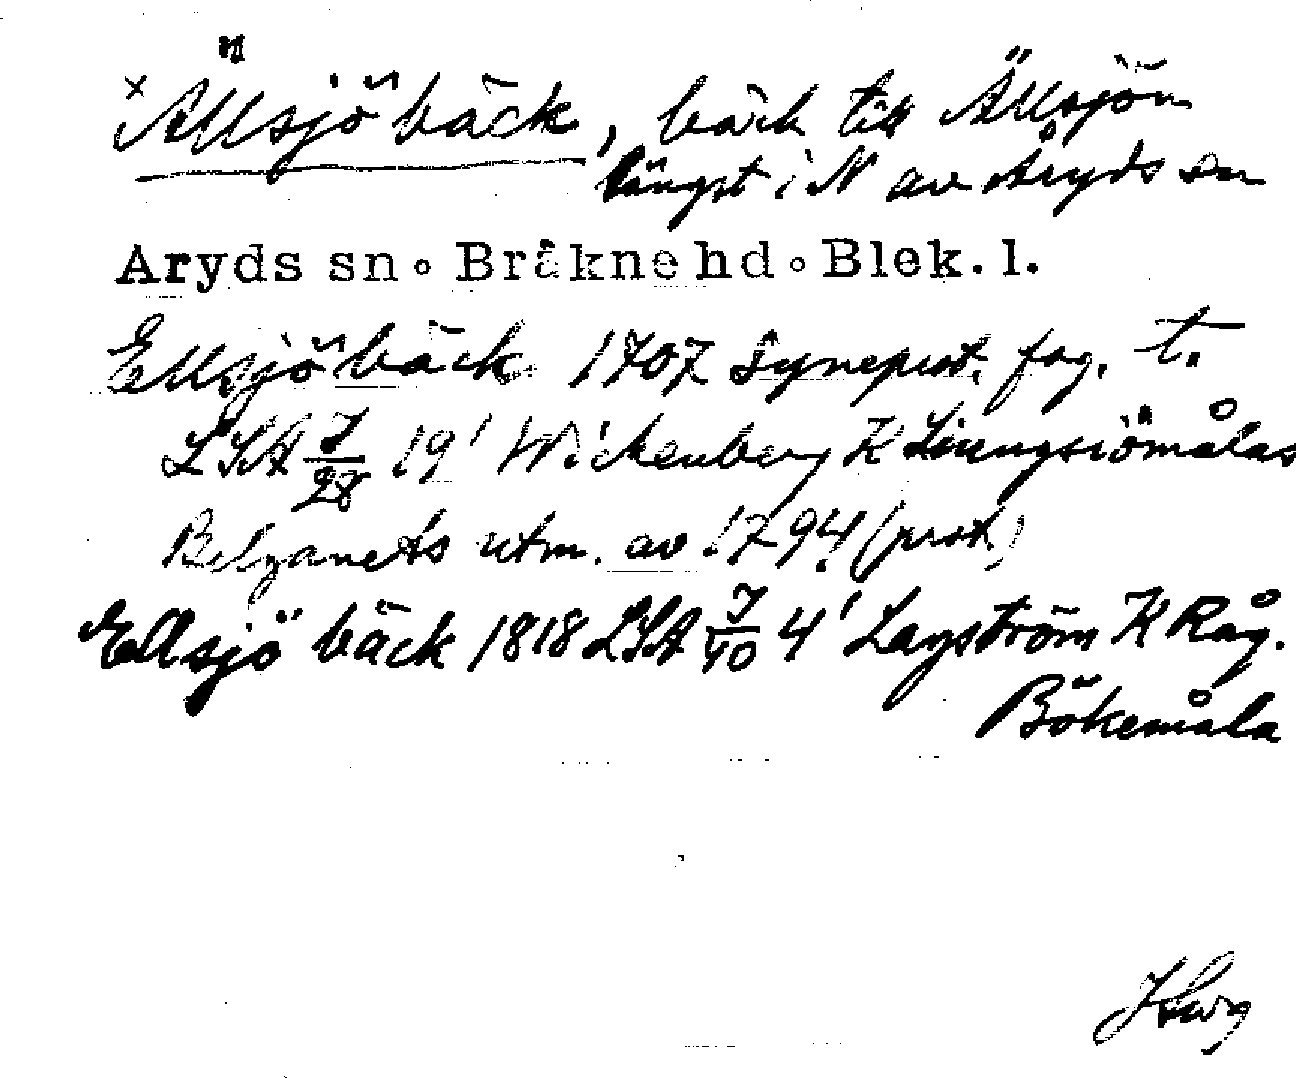 × Ällsjöbäck, bäck till Ällsjön
längst i N av Åryds sn
Aryds sn. Bräkne hd. Blek. l.
Ellsjöbäck 1707 Syneprot. fog. t.
LSA J/28 19' Wickenberg K Liungsiömålas
Belganets utm. av 1794 (prot.)
Ellsjö bäck 1818 LSA J/40 4' Lagström K Råg.
Bökemåla